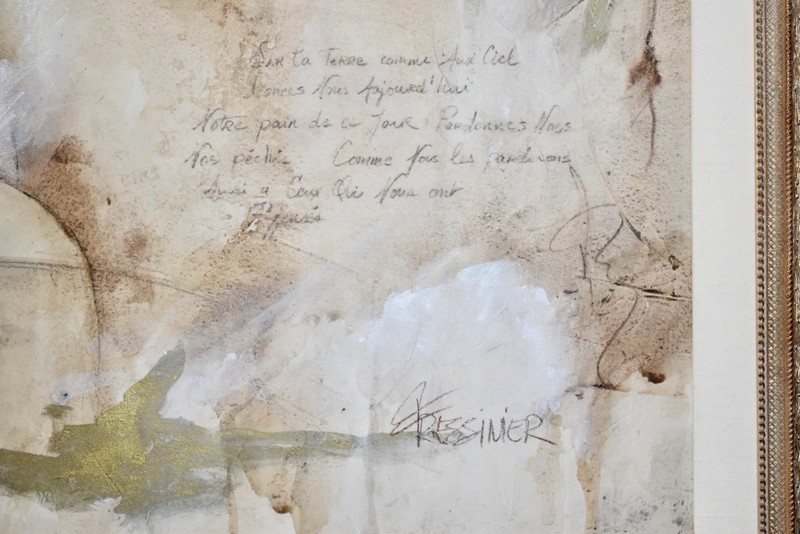 Sur la Terre comme Aux Ciel
Donnes Nous Aujourd'hui
Notre pain de ce Jour Pardonnes Nous
Nos péchés Comme Nous les pardonons
Aussi a Ceux Qui Nous ont
Offensés
KRESSINIER